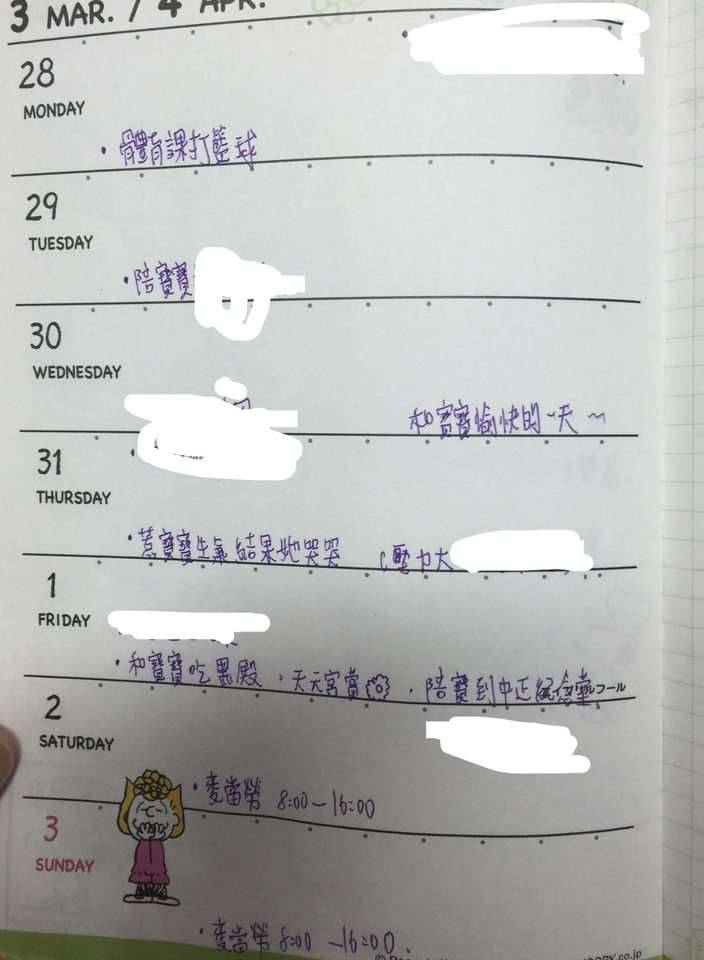 3 MAR. / 4 APR.
28
MONDAY
•體育課打籃球
29
TUESDAY
•陪寶寶
30
WEDNESDAY
和寶寶愉快的一天~
31
THURSDAY
•惹寶寶生氣結果她哭哭 (壓力大
1
FRIDAY
•和寶寶吃 殿,天元宮賞 .陪寶到中正紀念堂
2
SATURDAY
•麥當勞 8:00-16:00
3
SUNDAY
•麥當勞 8:00 -16:00.